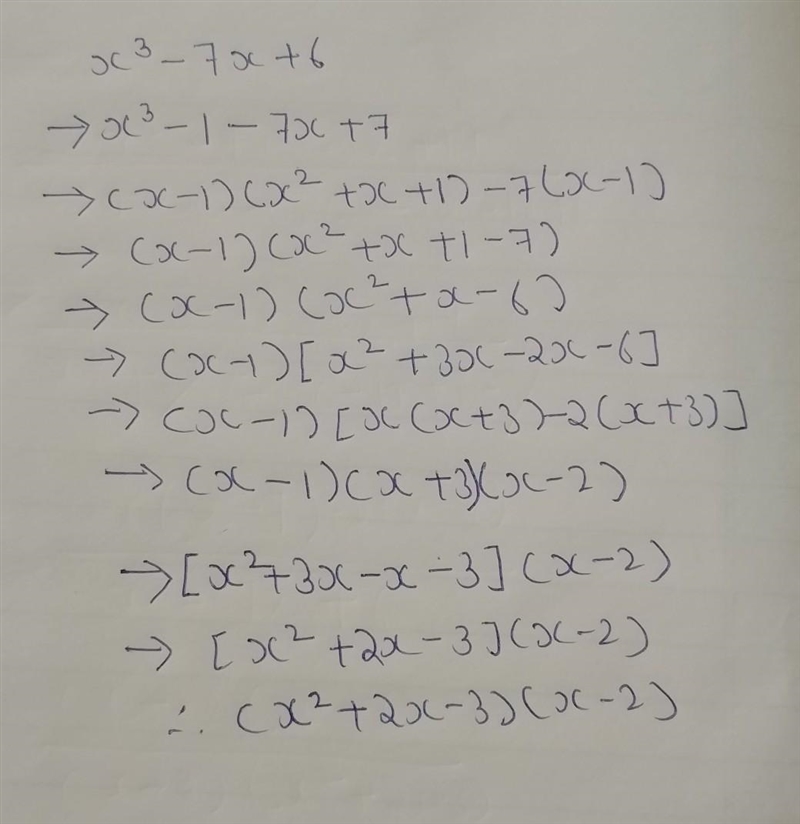 x³ - 7x + 6
→ x³ - 1 - 7x + 7
→ (x-1)(x² + x + 1) - 7(x-1)
→ (x-1)(x² + x + 1 - 7)
→ (x-1)(x² + x - 6)
→ (x-1)[x² + 3x - 2x - 6]
→ (x-1)[x(x+3) - 2(x+3)]
→ (x-1)(x+3)(x-2)
→ [x² + 3x - x - 3](x-2)
→ [x² + 2x - 3](x-2)
∴ (x² + 2x - 3)(x-2)